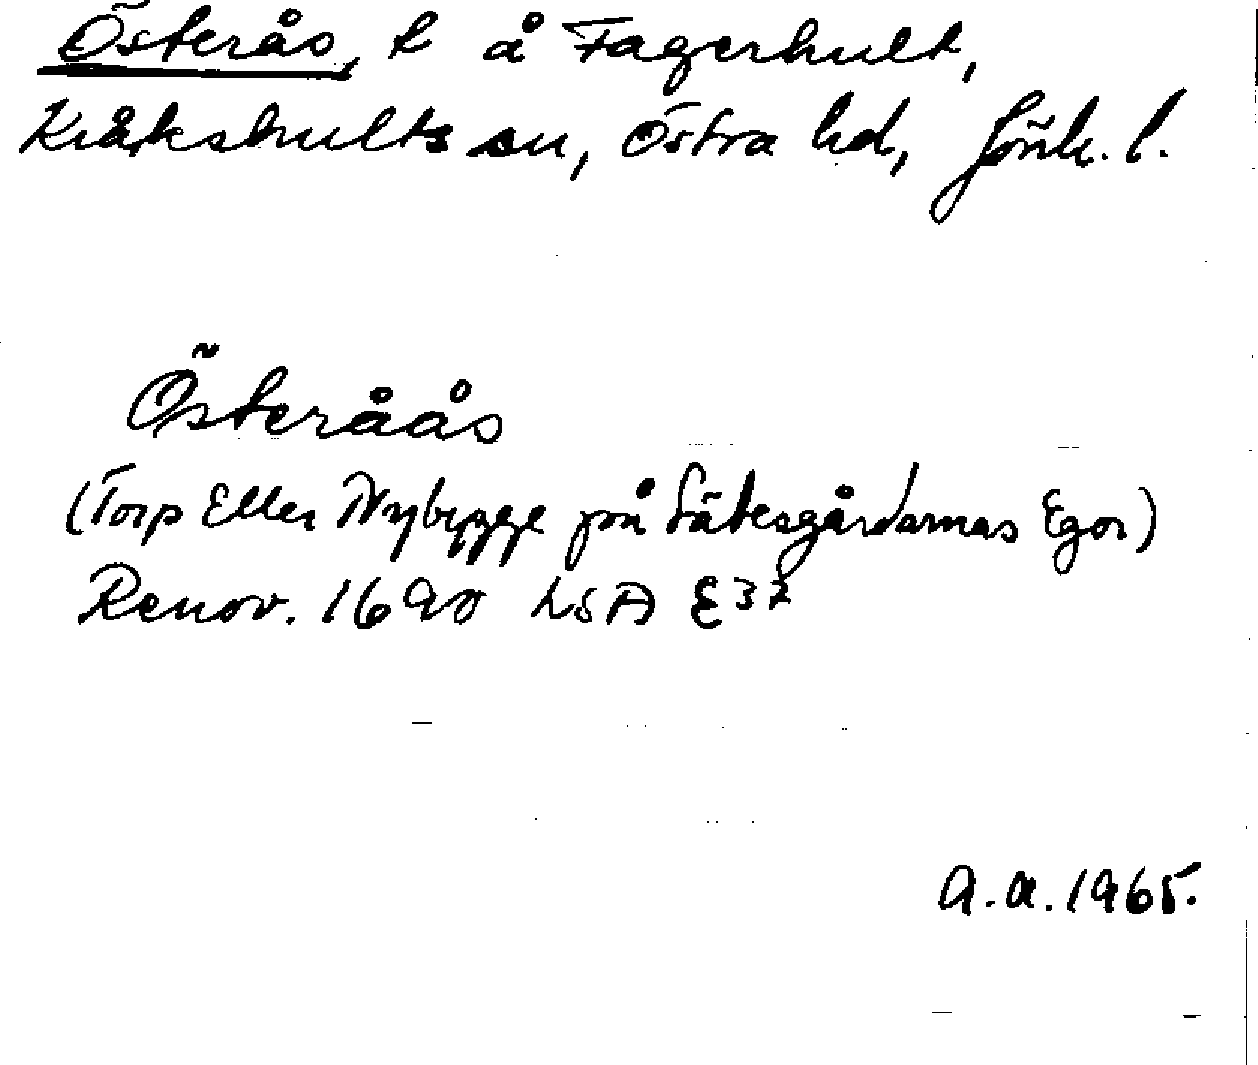 Österås, t å Fagerhult,
Kråkshults sn, Östra hd, Jönk. l.
Österåås
(Torp Eller Nybygge på Sätesgårdarnas Egor)
Renov. 1690 LSA E37
A.A. 1965.